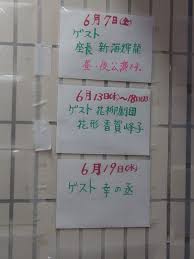 6月7日(金)
ゲスト
座長 新海輝龍
昼・夜公演
6月13日(木)〜18日(火)
ゲスト 花柳劇団
花形 音賀峰子
6月19日(水)
ゲスト 幸の丞